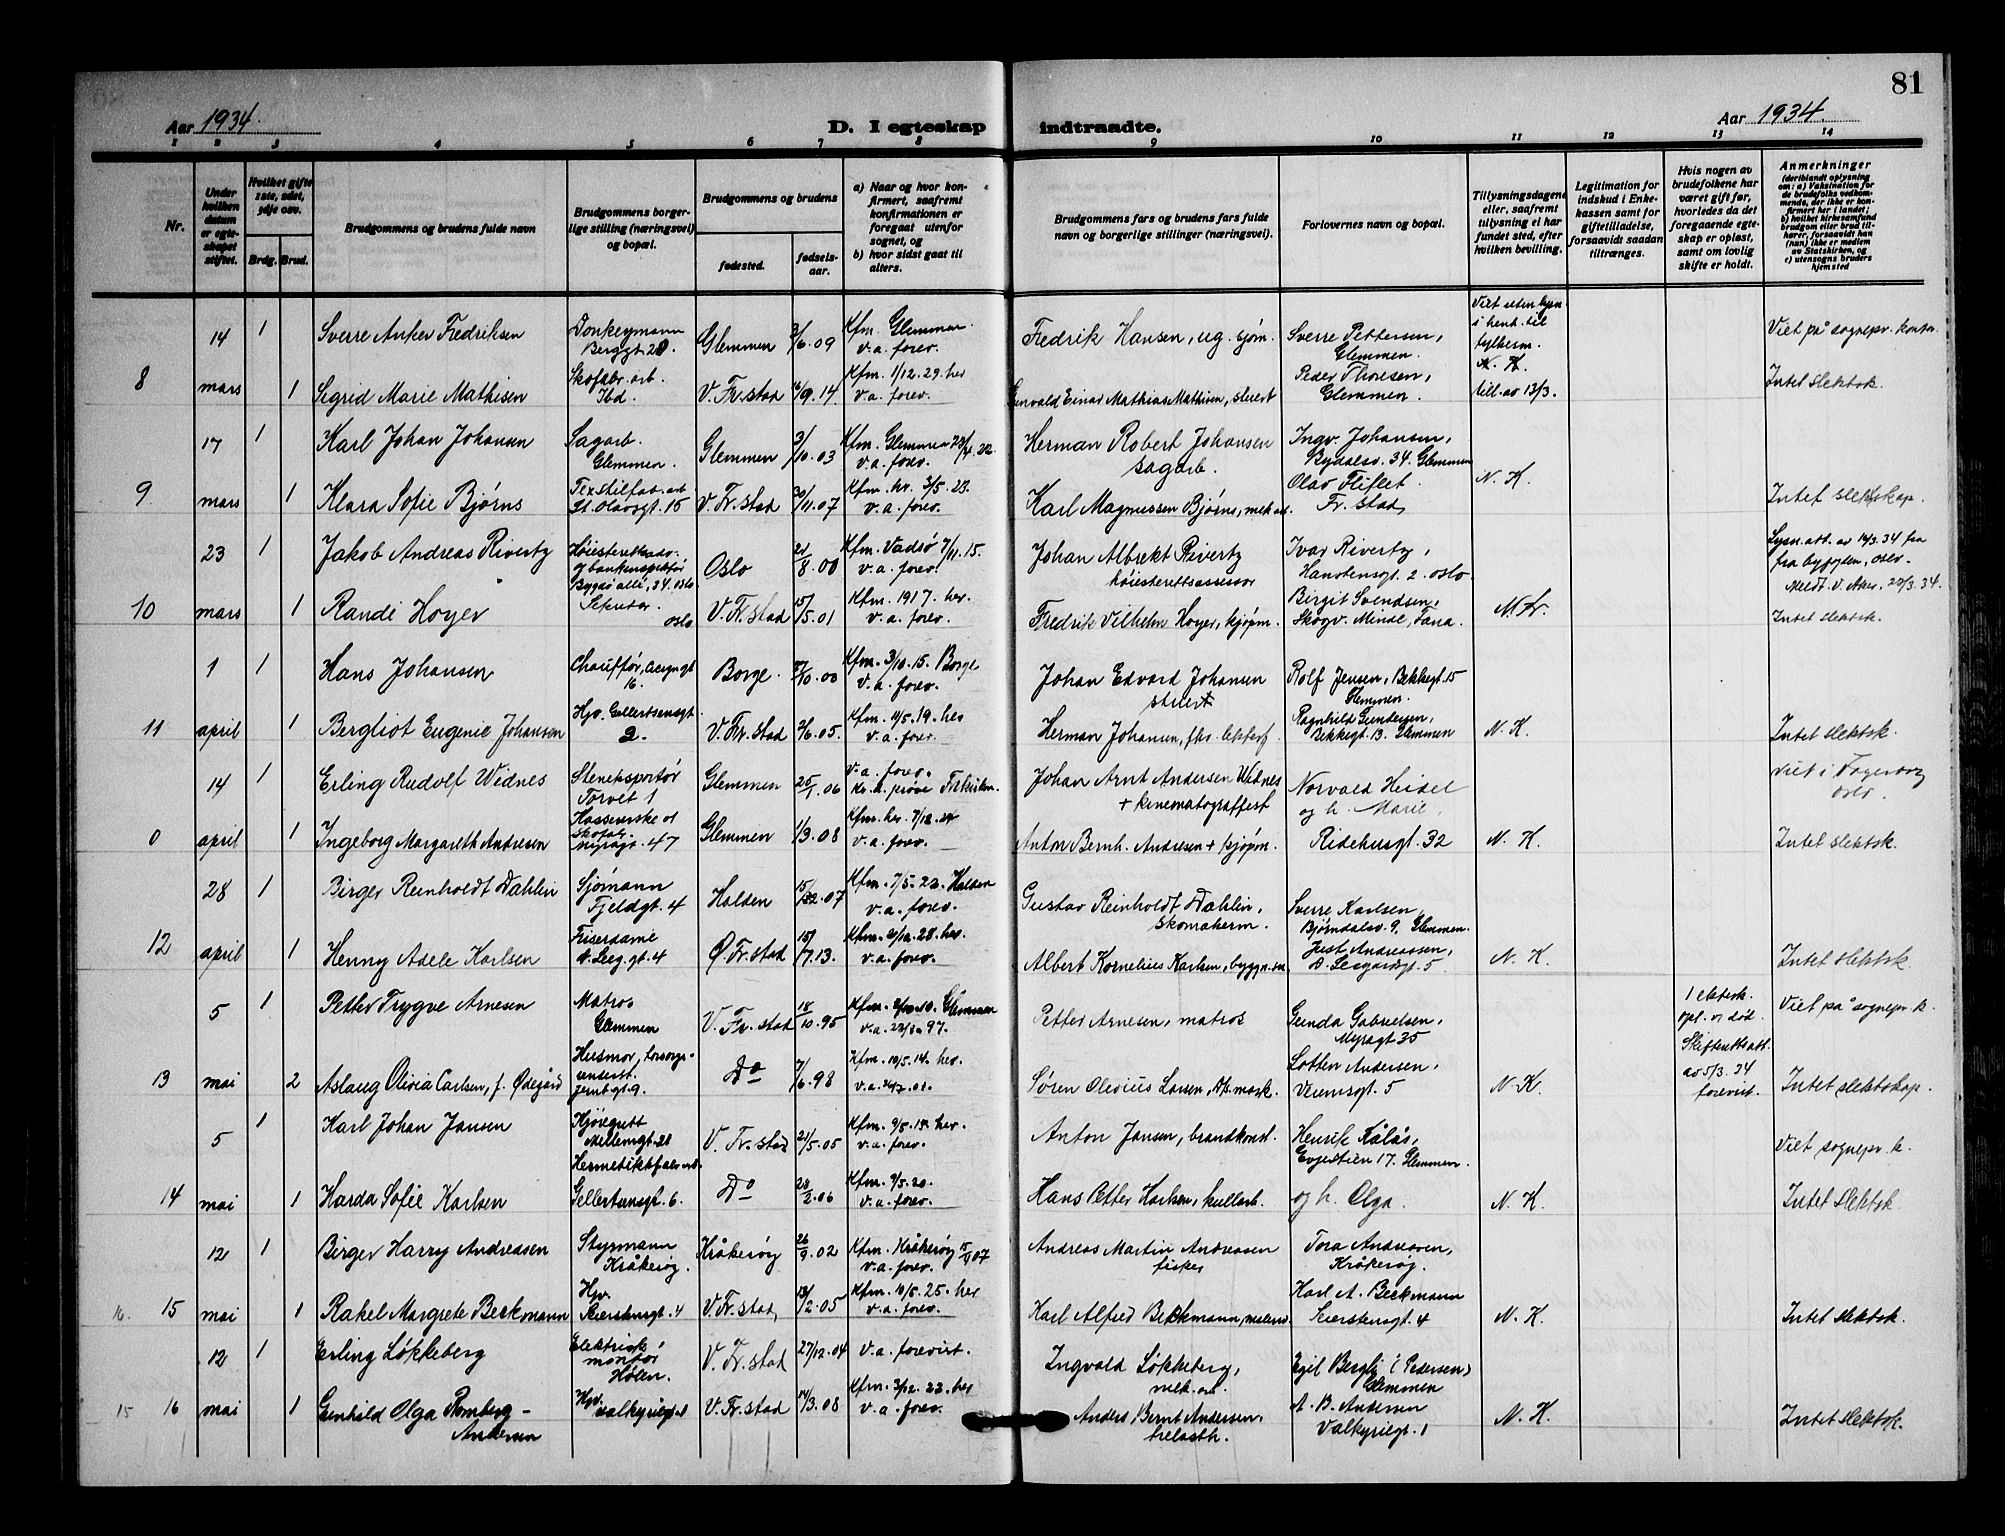 81
Aar 1934.
D. I egteskap indtraadte.
Aar 1934.
1 2 3 4 5 6 7 8 9 10 11 12 13 14
Nr.
Under hvilken datum er egteskapet stiftet.
Hvilket gifte 1ste, 2det, 3dje osv.
Brdg. Brud.
Brudgommens og brudens fulde navn
Brudgommens borgerlige stilling (næringsvei) og bopæl.
Brudgommens og brudens
fødested.
fødselsaar.
a) Naar og hvor konfirmert, saafremt konfirmationen er foregaat utenfor sognet, og
b) hvor sidst gaat til alters.
Brudgommens fars og brudens fars fulde navn og borgerlige stillinger (næringsvei).
Forlovernes navn og bopæl.
Tillysningsdagene eller, saafremt tillysning ei har fundet sted, efter hvilken bevilling.
Legitimation for indskud i Enkekassen samt for giftetilladelse, forsaavidt saadan tiltrænges.
Hvis nogen av brudefolkene har været gift før, hvorledes da det foregaaende egteskap er opløst, samt om lovlig skifte er holdt.
Anmerkninger
(deriblandt oplysning om: a) Vaksination for de brudefolks vedkommende, der ikke er konfirmert her i landet; b) hvilket kirkesamfund brudgom eller brud tilhører, forsaavidt han (hun) ikke er medlem av Statskirken, og c) utensogns bruders hjemsted
14 1 Sverre Anker Fredriksen Donkeymann Berggt. 28. Glemmen 3/6.09 Kfm. Glemmen v.a. forev. Fredrik Hansen, ug. sjøm. Sverre Pettersen, Glemmen. Viet på sognepr. kontor
8 mars 1 Sigrid Marie Mathisen Skofabr. arb. Ibd. V. Fr.stad 16/9.14 Kfm. 1/12.29. her v.a. forev. Einar Mathias Mathisen, stuert Peder Thoresen, Glemmen. N. K. till. av 13/3. Intet slektsk.
17 1 Karl Johan Johansen Sagarb. Glemmen. Glemmen 3/10.03 Kfm. Glemmen v.a. forev. Herman Robert Johansen sagarb. Ingv. Johansen, Bydalsv. 34. Glemmen
9 mars 1 Klara Sofie Bjørns Textilfab. arb St. Olavsgt. 15 V. Fr.stad 30/11.07 Kfm. hr. 3/5.23. v.a. forev. Karl Magnussen Bjørns, mek. arb. Olav Fliflet Fr.stad N. K. Intet slektskap.
23 1 Jakob Andreas Rivertz Høiesterettsadv. og bankinspektør Bygdø allé, 24. Oslo Oslo 21/8.00 Kfm. Vadsø 7/11.15. v.a. forev. Johan Albrekt Rivertz høiesterettsassessor Ivar Rivertz, Hanstensgt. 2. Oslo Lysn. att. av 14/3.34 fra fra byfogden, Oslo. Meldt. V. Aker, 20/3.34.
10 mars 1 Randi Høyer Sekretær Oslo V. Fr.stad 15/5.01 Kfm. 1917. her. v.a. forev. Fredrik Vilhelm Høyer, kjøpm. Birgit Svendsen, Skogv. Minde, Fana. Intet slektsk.
1 1 Hans Johansen Chauffør, 16. Borge. 27/10.00 Kfm. 3/10.15. Borge v.a. forev. Johan Edvard Johansen stuert Rolf Jensen, Bekkegt. 15 Glemmen.
11 april 1 Bergliot Eugenie Johansen Hjv. Gellertsensgt. 2. V. Fr.stad 26/6.05. Kfm. 11/5.19. her v.a. forev. Herman Johansen, Ragnhild Gundersen, Bekkegt. 13. Glemmen N. K. Intet slektsk.
14 1 Erling Rudolf Widnes Torvet 1 Glemmen 25/1.06 v.a. forev. Johan Arnt Andersen Widnes + kinematograffest Norvald Heidel og h. Marie, Viet i Fagerborg Oslo.
0 april 1 Ingeborg Margareth Andresen Kasserske Glemmen 1/3.08 Kfm. her. 7/12.24 v.a. forev. Anton Bernh. Andresen + kjøpm. Ridehusgt. 32 N. K. Intet slektsk.
28 1 Birger Reinholdt Dahlin Sjømann Fjeldgt. 4 Halden 15/12.07 Kfm. 7/5.22. Halden v.a. forev. Gustav Reinholdt Dahlin, Skomakerm. Sverre Karlsen, Bjørndalsv. 9. Glemmen.
12 april 1 Henny Adele Karlsen Friserdame gt. 4 Ø. Fr.stad 15/7.13. Kfm. 2/12.28. her. v.a. forev. Albert Kornelius Karlsen, Just Andreassen, 5 N. K. Intet slektsk.
5 1 Petter Trygve Arnesen Matros Glemmen V. Fr. stad 18/10.95 Kfm. 2/10.10. Glemmen v.a. Petter Arnesen, matros Gunda Gabrielsen, Myragt 35 1 ektesk. opl. v. død. Viet på sognepr. k.
13 mai 2 Aslaug Olivia Carlsen, f. Ødegård Husmor, forsorgsunderst. Do 7/6.98 Kfm. 10/5.14. her. v.a. Søren Olevius Larsen, Lotten Andersen, Veumsgt. 5 N. K. Skifterettsatt. av 5/3.34 forevist. Intet slektskap.
5 1 Karl Johan Jansen Kjøregutt Mellemgt. 21 V. Fr.stad 21/5.05 Kfm. 9/5.19. her. v.a. forev. Anton Jansen, brandkonst. Henrik Kålås, Evjestien 17. Glemmen. Viet sognepr. k.
14 mai 1 Harda Sofie Karlsen Hermetikkfabr. arb. Gellertsensgt. 6. Do 28/2.06 Kfm. 9/5.20. v.a. forev. Hans Petter Karlsen, og h. Olga. N. K. Intet slektsk.
12 1 Birger Harry Andreassen Styrmann Kråkerøy. Kråkerøy 26/9.02 Kfm. Kråkerøy v.a. forev. Andreas Martin Andreassen fisker Tora Andreassen, Kråkerøy.
16. 15 mai 1 Rakel Margrete Beckmann Hjv. Kierstensgt. 4 V. Fr.stad, 13/2.05 Kfm. 10/5.25. her v.a. forev. Karl Alfred Beckmann, Karl A. Beckmann Kierstensgt. 4 N. K. Intet slektsk.
12 1 Erling Løkkeberg Elektrisk montør Hølen. V. Fr. stad 27/12.04 v.a. forevist. Ingvald Løkkeberg, mek. arb. Egil Bergli (Pedersen) Glemmen
15 16 mai 1 Gunhild Olga Romberg - Andersen Hjv. V. Fr.stad 14/3.08 Kfm. 3/12.22. her v.a. forev. Anders Bernt Andersen, trelasth. A. B. Andersen Valkyriegt. 1 N. K. Intet slektsk.